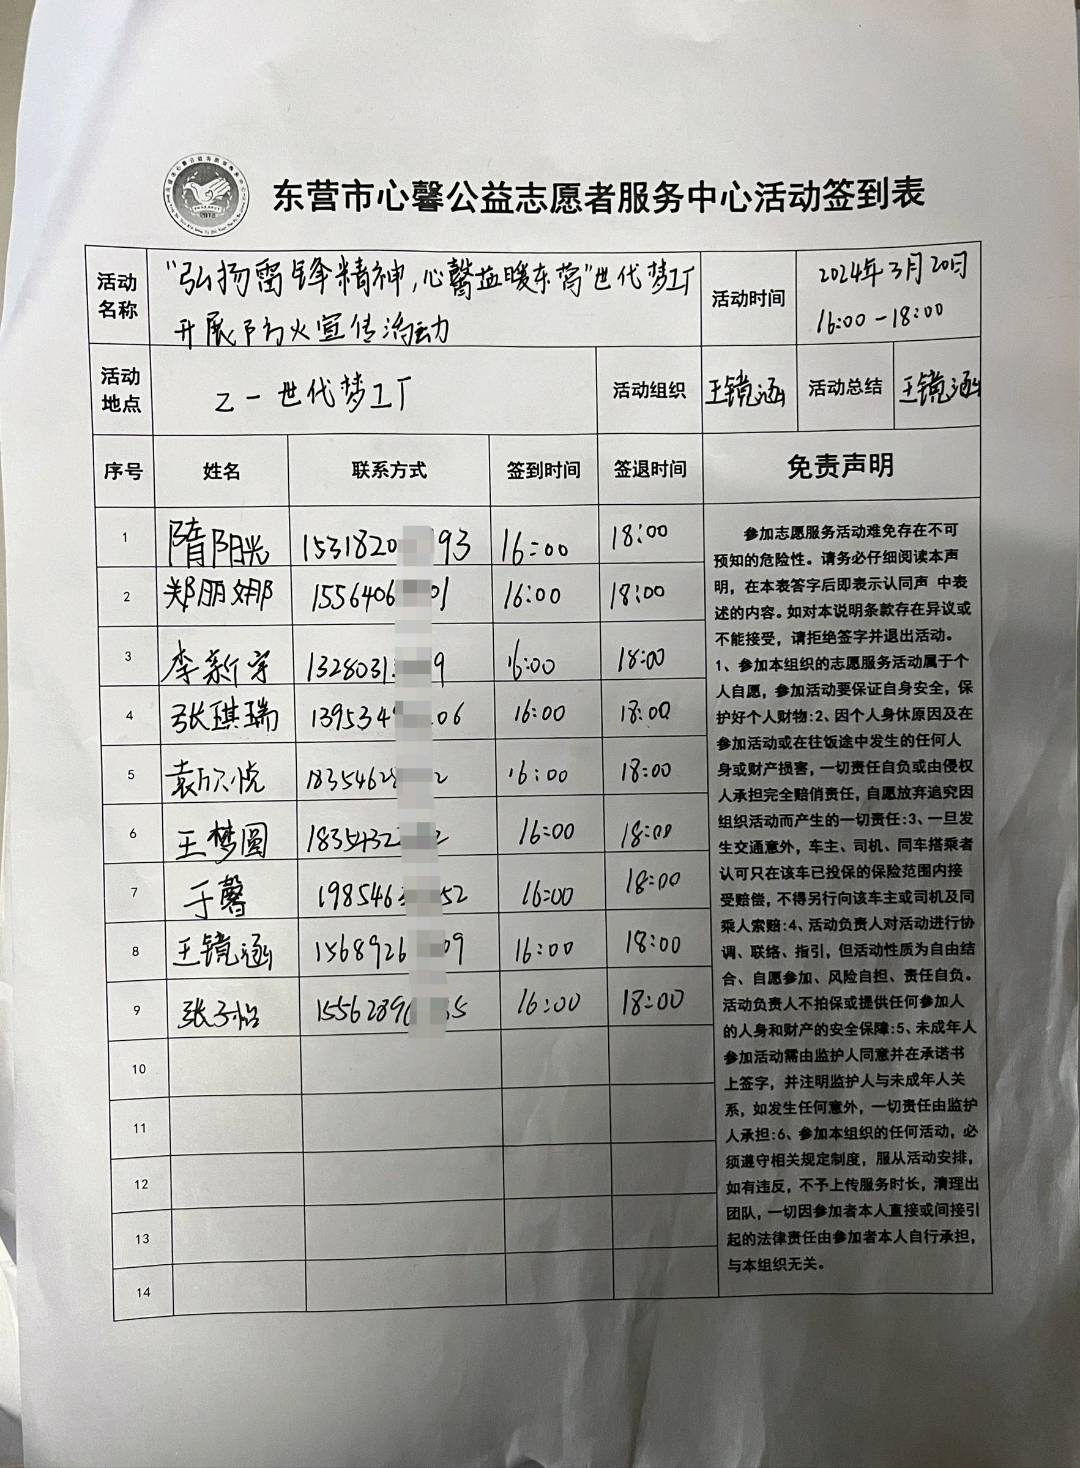 东营市心馨公益志愿者服务中心活动签到表
活动名称
"弘扬雷锋精神,心馨益暖东营"世代梦工厂
开展防火宣传活动
活动时间
2024年3月20日
16:00-18:00
活动地点
乙一世代梦工厂
活动组织
王镜涵
活动总结
王镜涵
序号 姓名 联系方式 签到时间 签退时间 免责声明
1 隋阳光 1531820 93 16:00 18:00
2 郑丽娜 1556406 01 16:00 18:00
3 李新宇 1328031 9 16:00 18:00
4 张琪瑞 139534 06 16:00 18:00
5 袁欣悦 1835462 2 16:00 18:00
6 王梦圆 1835432 2 16:00 18:00
7 于馨 198546 52 16:00 18:00
8 王镜涵 1568926 09 16:00 18:00
9 张子怡 1556289 5 16:00 18:00
10
11
12
13
14
参加志愿服务活动难免存在不可
预知的危险性。请务必仔细阅读本声
明，在本表签字后即表示认同声 中表
述的内容。如对本说明条款存在异议或
不能接受，请拒绝签字并退出活动。
1、参加本组织的志愿服务活动属于个
人自愿，参加活动要保证自身安全，保
护好个人财物:2、因个人身休原因及在
参加活动或在往饭途中发生的任何人
身或财产损害，一切责任自负或由侵权
人承担完全赔俏责任，自愿放弃追究因
组织活动而产生的一切责任:3、一旦发
生交通意外，车主、司机、同车搭乘者
认可只在该车已投保的保险范围内接
受赔偿，不得另行向该车主或司机及同
乘人索赔:4、活动负责人对活动进行协
调、联络、指引，但活动性质为自由结
合、自愿参加、风险自担、责任自负。
活动负责人不拍保或提供任何参加人
的人身和财产的安全保障:5、未成年人
参加活动需由监护人同意并在承诺书
上签字，并注明监护人与未成年人关
系，如发生任何意外，一切责任由监护
人承担:6、参加本组织的任何活动，必
须遵守相关规定制度，服从活动安排，
如有违反，不予上传服务时长，清理出
团队，一切因参加者本人直接或间接引
起的法律责任由参加者本人自行承担，
与本组织无关。